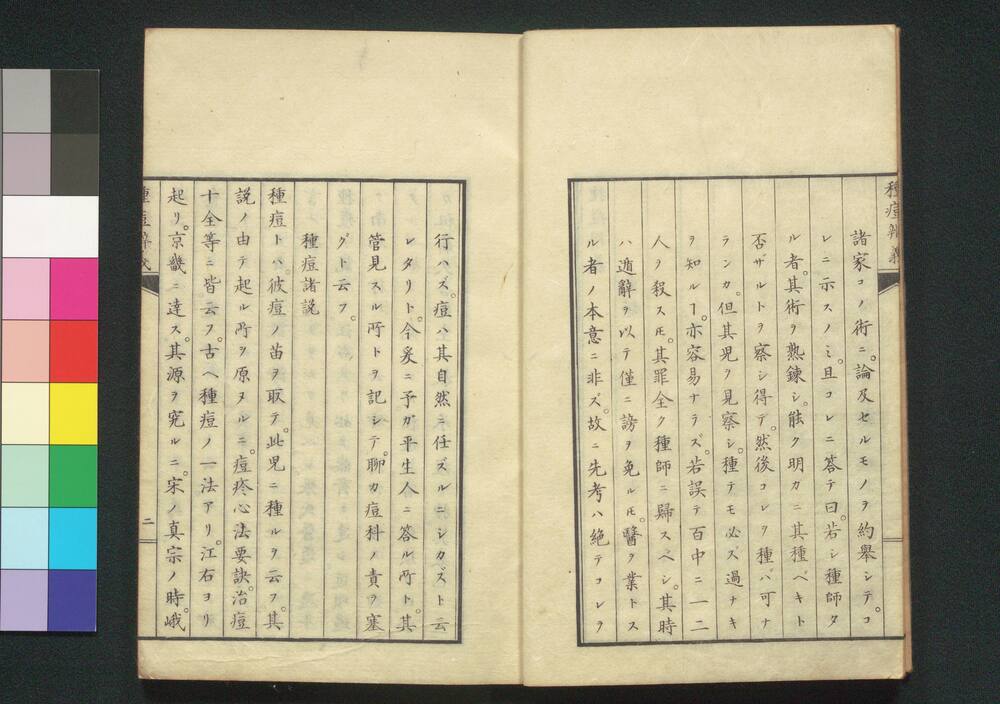 種痘辨義
諸家コノ術ニ。論及セルモノヲ約舉シテ。コ
レニ示スノミ。且コレニ答テ曰。若シ種師タ
ル者。其術ヲ熟鍊シ。能ク明カニ其種ベキト
否ザルトヲ察シ得テ。然後コレヲ種バ可ナ
ランカ。但其児ヲ見察シ。種テモ必ズ過ナキ
ヲ知ルヿ。亦容易ナラズ。若誤テ百中ニ一二
人ヲ殺スモ。其罪全ク種師ニ歸スベシ。其時
ハ遁辭ヲ以テ僅ニ謗ヲ免ルモ。醫ヲ業トス
ル者ノ本意ニ非ズ。故ニ先考ハ絶テコレヲ
行ハズ。痘ハ其自然ニ任ズルニシカズト云
レタリト。今爰ニ予ガ平生人ニ答ル所ト。其
管見スル所トヲ記シテ。聊カ痘科ノ責ヲ塞
グト云フ。
種痘諸説
種痘トハ。彼痘ノ苗ヲ取テ。此児ニ種ルヲ云フ。其
説ノ由テ起ル所ヲ原ヌルニ。痘疹心法要訣。治痘
十全等ニ皆云フ。古ヘ種痘ノ一法アリ。江右ヨリ
起リ。京畿ニ達ス。其源ヲ究ルニ。宋ノ真宗ノ時。峨
種痘辨義
二